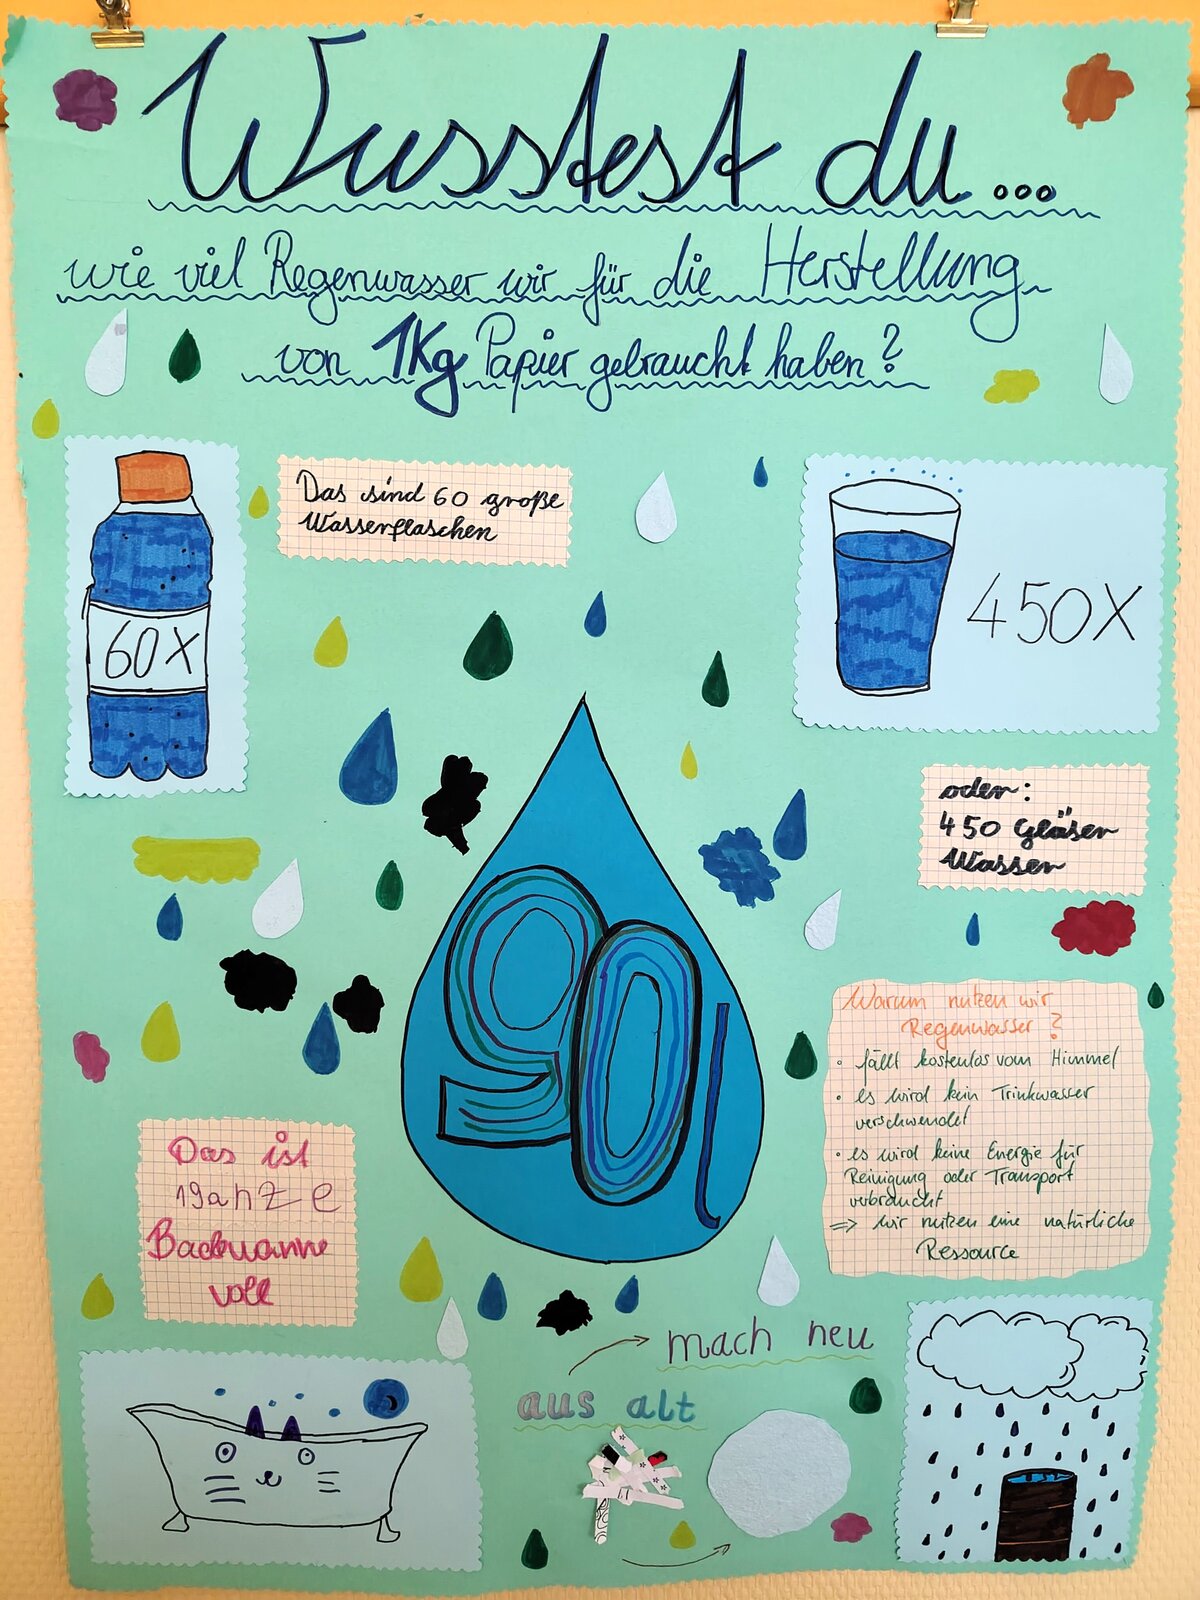 Wusstest du...
wie viel Regenwasser wir für die Herstellung
von 1Kg Papier gebraucht haben?
Das sind 60 große
Wasserflaschen
60X
450X
oder:
450 Gläser
Wasser
90l
Warum nutzen wir
Regenwasser?
• fällt kostenlos vom Himmel
• es wird kein Trinkwasser
verschwendet
• es wird keine Energie für
Reinigung oder Transport
verbraucht
=> wir nutzen eine natürliche
Ressource
Das ist
1ganze
Badewanne
voll
mach neu
aus alt